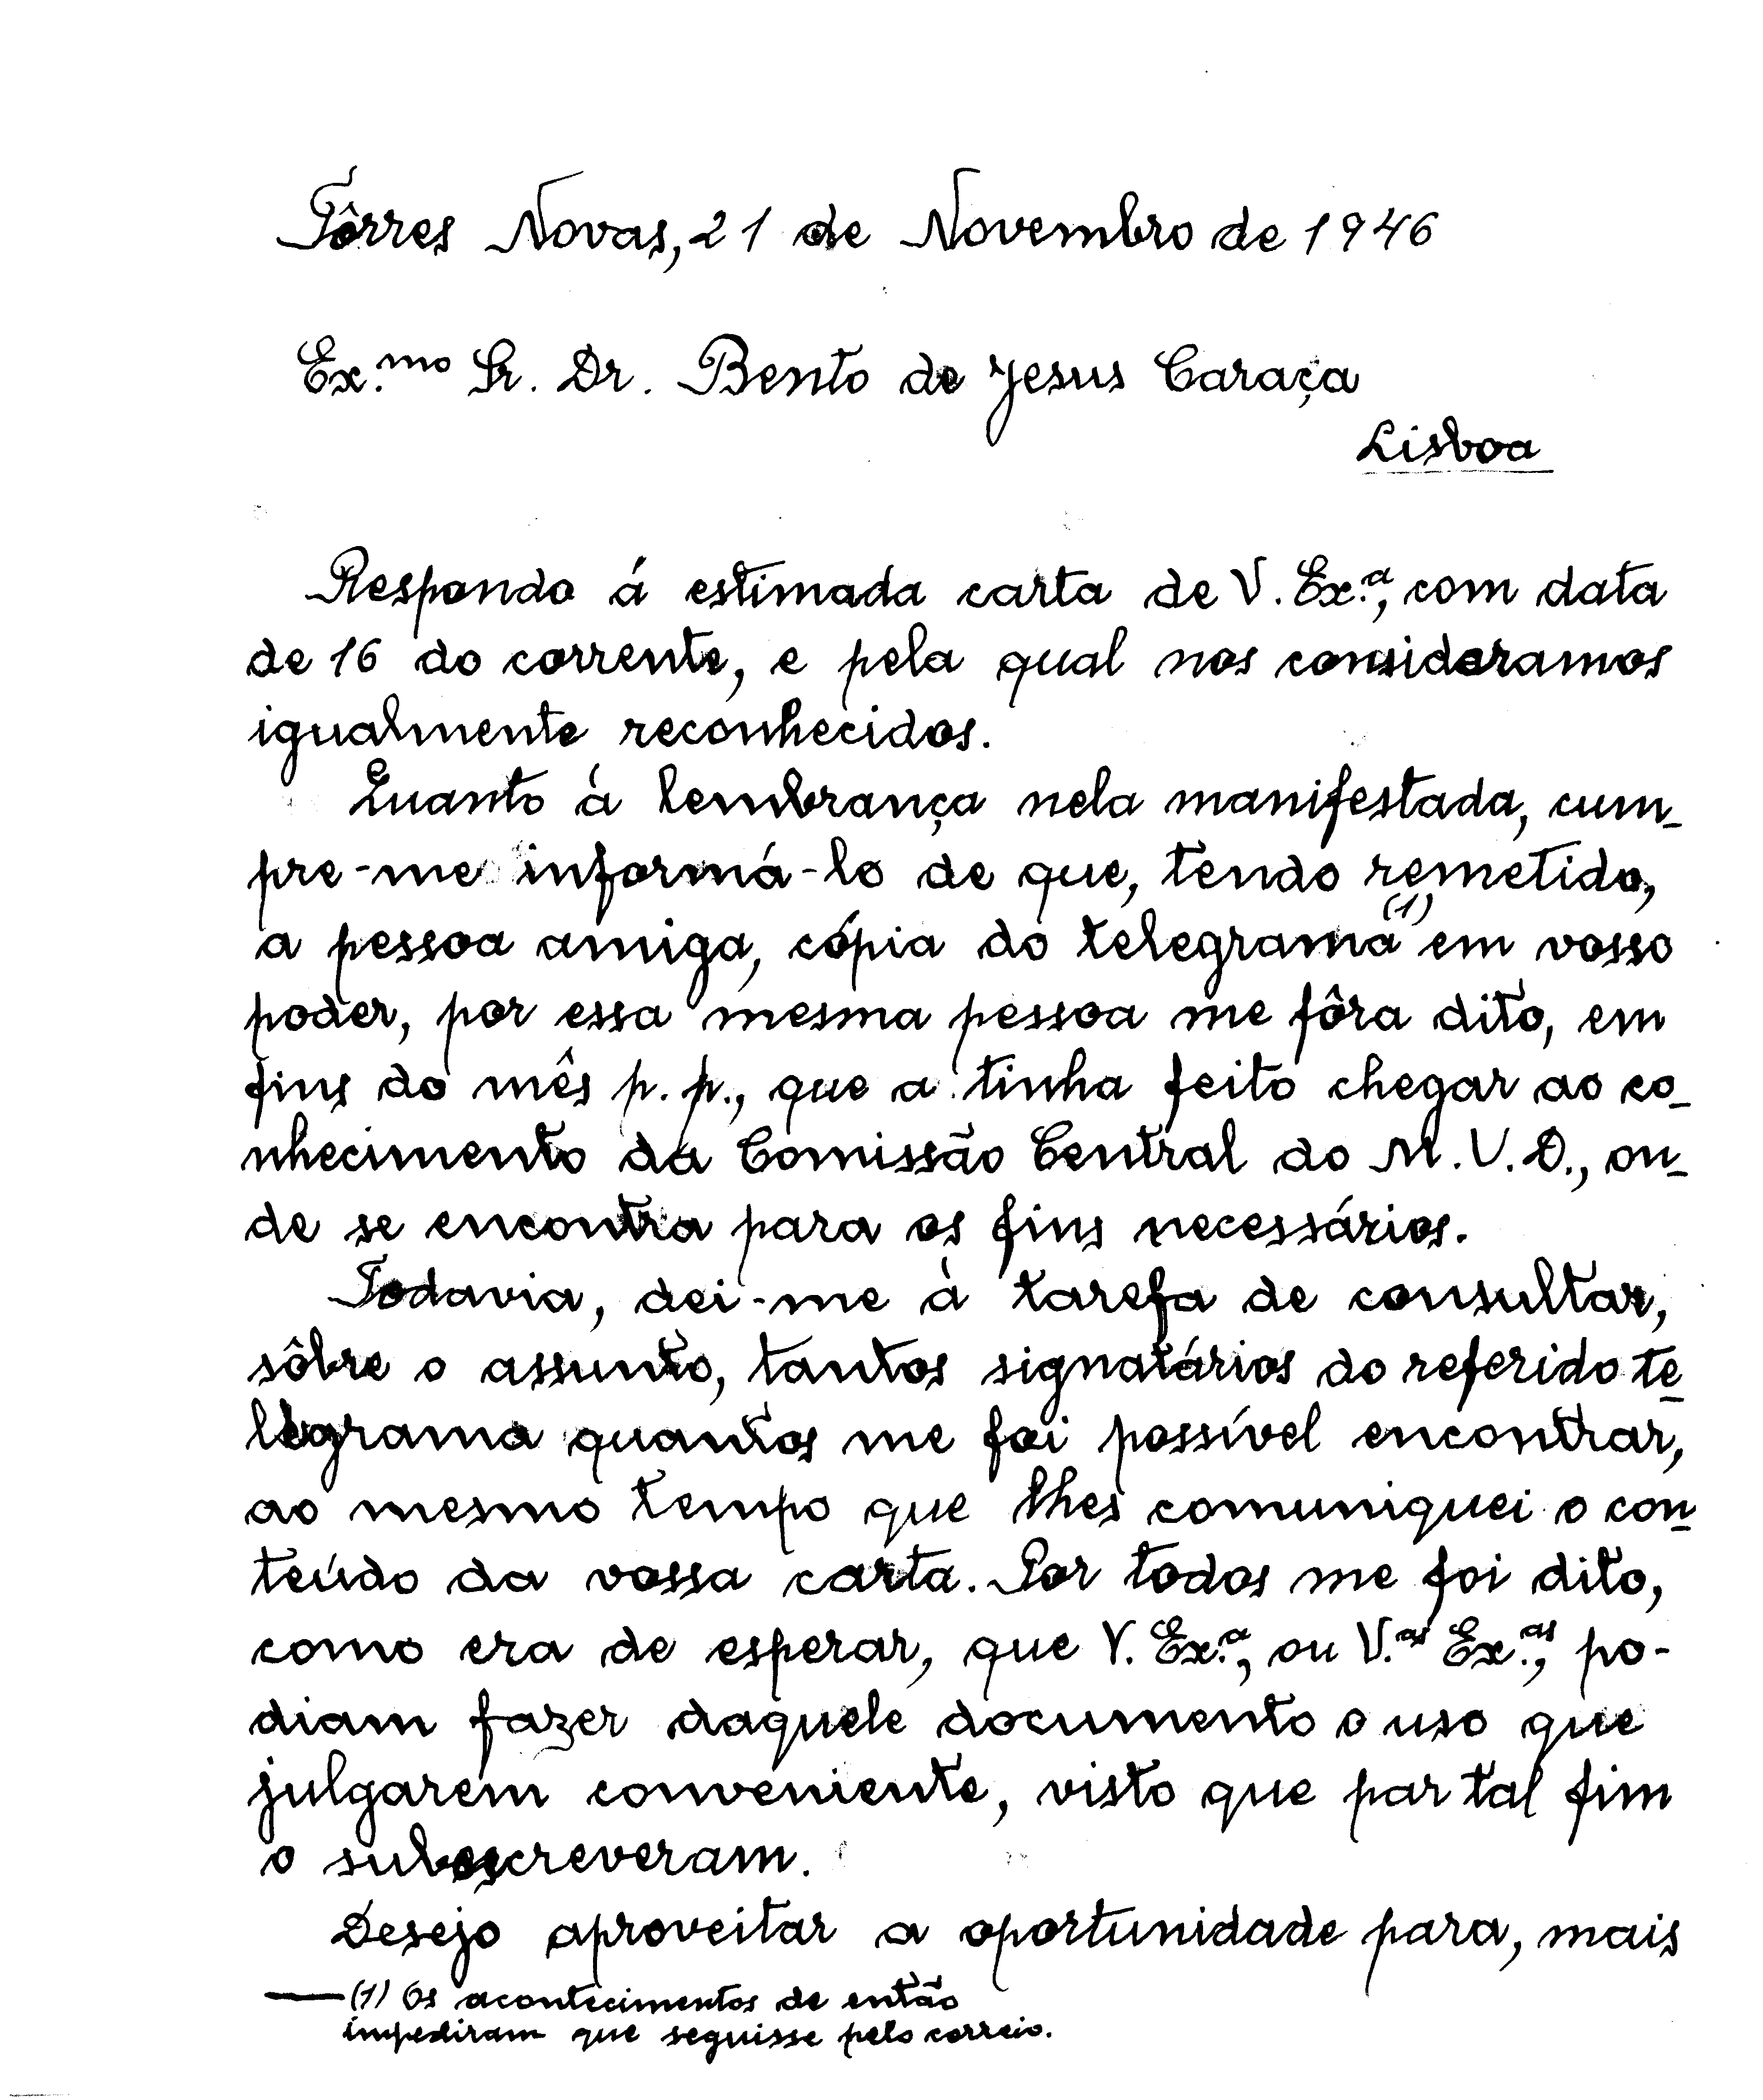 Tôrres Novas, 21 de Novembro de 1946
Ex.mo Sr. Dr. Bento de Jesus Caraça
Lisboa
Respondo á estimada carta de V. Ex.a, com data
de 16 do corrente, e pela qual nos consideramos
igualmente reconhecidos.
Quanto à lembrança nela manifestada, cum-
pre-me informá-lo de que, tendo remetido,
a pessoa amiga, cópia do telegrama (1) em vosso
poder, por essa mesma pessoa me fôra dito, em
fins do mês p. p., que a tinha feito chegar ao co-
nhecimento da Comissão Central do M.U.D., on-
de se encontra para os fins necessários.
Todavia, dei-me à tarefa de consultar,
sôbre o assunto, tantos signatários do referido te-
legrama quantos me foi possível encontrar,
ao mesmo tempo que lhes comuniquei o con-
teúdo da vossa carta. Por todos me foi dito,
como era de esperar, que V. Ex.a, ou V.as Ex.as, po-
diam fazer daquele documento o uso que
julgarem conveniente, visto que par tal fim
o subescreveram.
Desejo aproveitar a oportunidade para, mais
(1) Os acontecimentos de então
impediram que seguisse pelo correio.